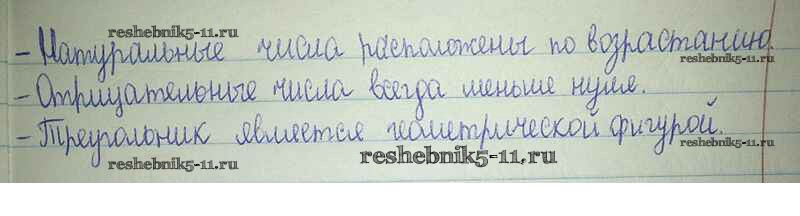 reshebnik5-11.ru
- Натуральные числа расположены по возрастанию.
reshebnik5-11.ru
reshebnik5-11.ru
- Отрицательные числа всегда меньше нуля.
- Треугольник является геометрической фигурой.
reshebnik5-11.ru
reshebnik5-11.ru
reshebnik5-11.ru